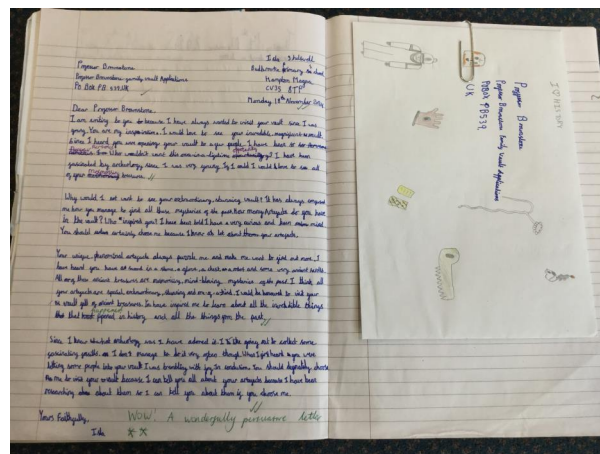 Professor Brownstone
Professor Brownstone family vault Applications
PO Box PB 539, UK
Isla
Budbrooke primary school
Hampton Magna
CV35 8TP
Monday 18th November
Dear Professor Brownstone,
I am writing to you because I have always wanted to visit your vault since I was
young. You are my inspiration. I would love to see your incredible, magnificent vault.
Since I heard you were opening your vault to a few people I have been
Who wouldn't want this once-in-a-lifetime opportunity? I have been
fascinated by archaeology since I was very young. If I could I would love to see all
of your treasures.
Why would I not want to see your extraordinary, stunning vault? It has always
me how you manage to find all these mysteries of the past. How many artefacts do you have
in the vault? Who inspired you? I have been told I have a very curious and keen mind.
You should certainly choose me because I know a lot about your artefacts.
Your unique, phenomenal artefacts always puzzle me and make me want to find out more. I
have heard you have a glove, a chest and some very ancient
All of these ancient treasures are mind-blowing mysteries of the past. I think all
your artefacts are special, extraordinary, stunning and one of a kind. I would be honoured to visit your
vault full of ancient treasures. You have inspired me to learn about all the incredible things
that happened in history and all the things from the past.
Since I knew what archaeology was I have adored it. I like going out to collect some
fascinating fossils. I don't manage to do it very often though. When I first heard you were
letting some people into your vault I was trembling with joy. In conclusion, You should definitely choose
me to visit your vault because I can tell you all about your artefacts because I have been
researching about them so I can tell you about them if you choose me.
Yours Faithfully,
Isla
WOW! A wonderfully persuasive letter
I ♡ HISTORY
Professor Brownstone
Professor Brownstone family vault Applications
PO Box PB539
UK